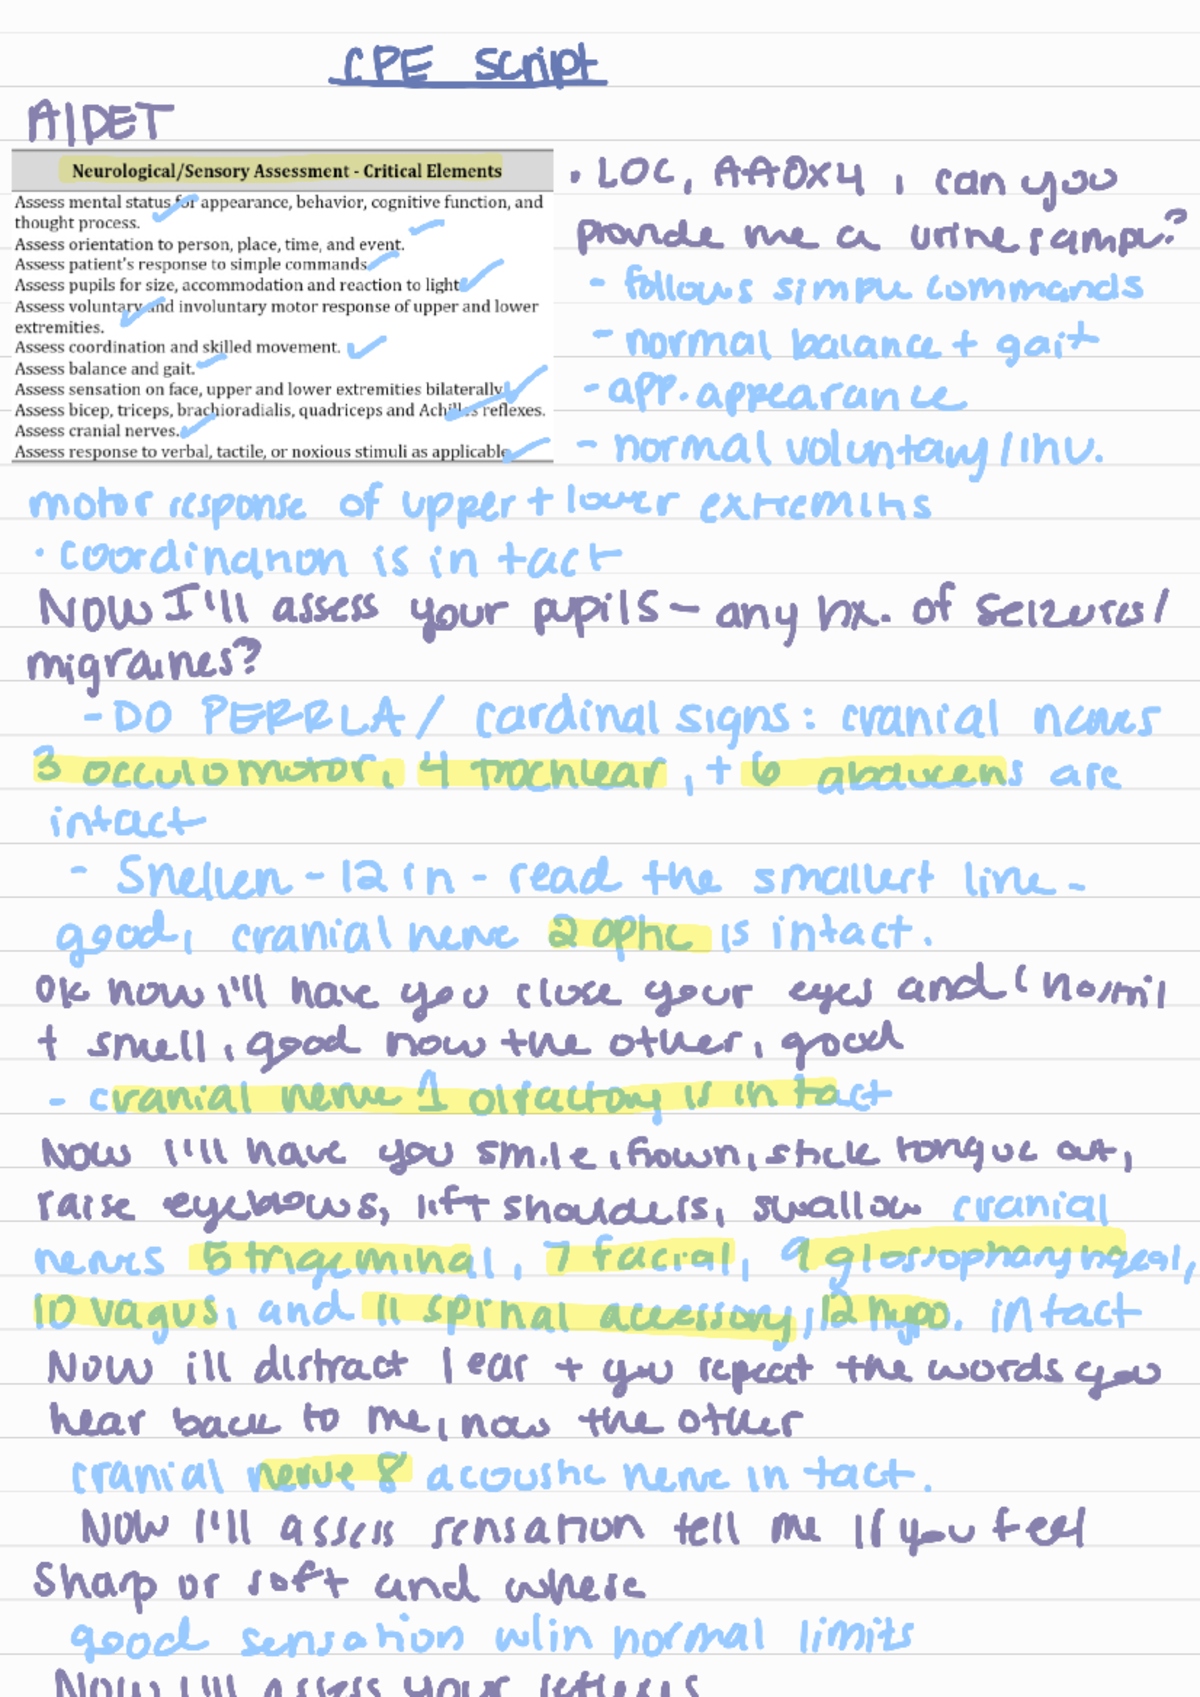 CPE Script
AIDET
Neurological/Sensory Assessment - Critical Elements
Assess mental status for appearance, behavior, cognitive function, and
thought process.
Assess orientation to person, place, time, and event.
Assess patient's response to simple commands
Assess pupils for size, accommodation and reaction to light
Assess voluntary and involuntary motor response of upper and lower
extremities.
Assess coordination and skilled movement.
Assess balance and gait.
Assess sensation on face, upper and lower extremities bilaterally
Assess bicep, triceps, brachioradialis, quadriceps and Achilles reflexes.
Assess cranial nerves.
Assess response to verbal, tactile, or noxious stimuli as applicable
• LOC, AAOX4, can you
provide me a urine sample?
- follows simple commands
- normal balance + gait
- app. appearance
- normal voluntary/inv.
motor response of upper + lower extremities
• coordination is in tact
Now I'll assess your pupils - any hx. of seizures/
migraines?
- DO PERRLA / cardinal signs: cranial nerves
3 occulomotor, 4 trochlear, + 6 abducens are
intact
- Snellen - 12 in - read the smallest line -
good, cranial nerve 2 optic is intact.
Ok now i'll have you close your eyes and 1 nostril
+ smell, good now the other, good
- cranial nerve 1 olfactory is in tact
Now I'll have you smile, frown, stick tongue out,
raise eyebrows, lift shoulders, swallow cranial
nerves 5 trigeminal, 7 facial, 9 glossopharyngeal,
10 vagus, and 11 spinal accessory, 12 hypo. intact
Now ill distract 1 ear + you repeat the words you
hear back to me, now the other
cranial nerve 8 acoustic nerve in tact.
Now I'll assess sensation tell me if you feel
sharp or soft and where
good sensation w/in normal limits
Now I'll assess your reflexes